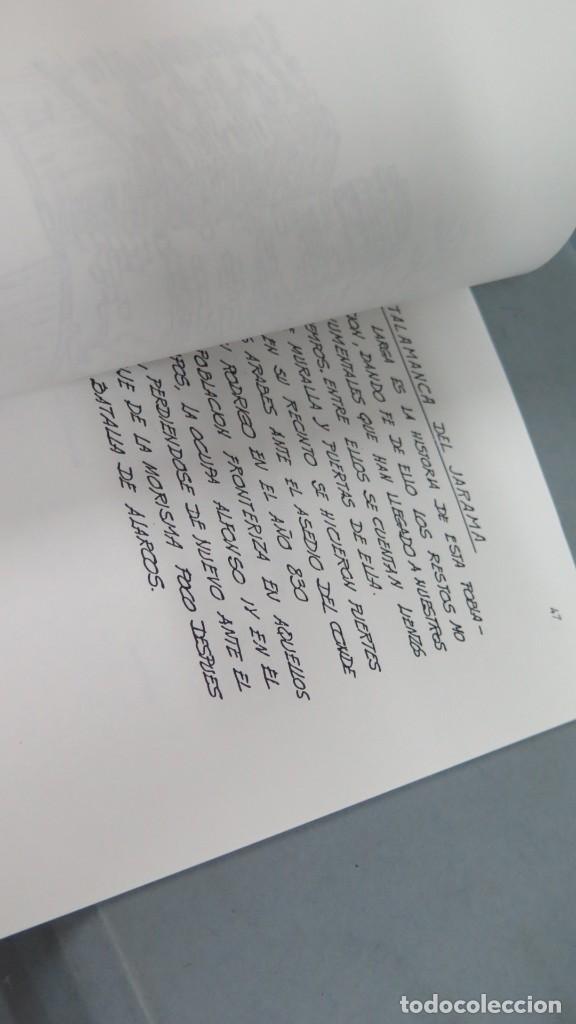 TALAMANCA DEL JARAMA
LARGA ES LA HISTORIA DE ESTA POBLA-
DANDO FE DE ELLO LOS RESTOS MO
UMENTALES QUE HAN LLEGADO A NUESTROS
ENTRE ELLOS SE CUENTAN LIENZOS
MURALLA Y PUERTAS DE ELLA.
EN SU RECINTO SE HICIERON FUERTES
ARABES ANTE EL ASEDIO DEL CONDE
RODRIGO EN EL AÑO 830
POBLACION FRONTERIZA EN AQUELLOS
LA OCUPA ALFONSO IV EN EL
, PERDIENDOSE DE NUEVO ANTE EL
UE DE LA MORISMA POCO DESPUES
BATALLA DE ALARCOS.
47
todocoleccion
todocoleccion.net